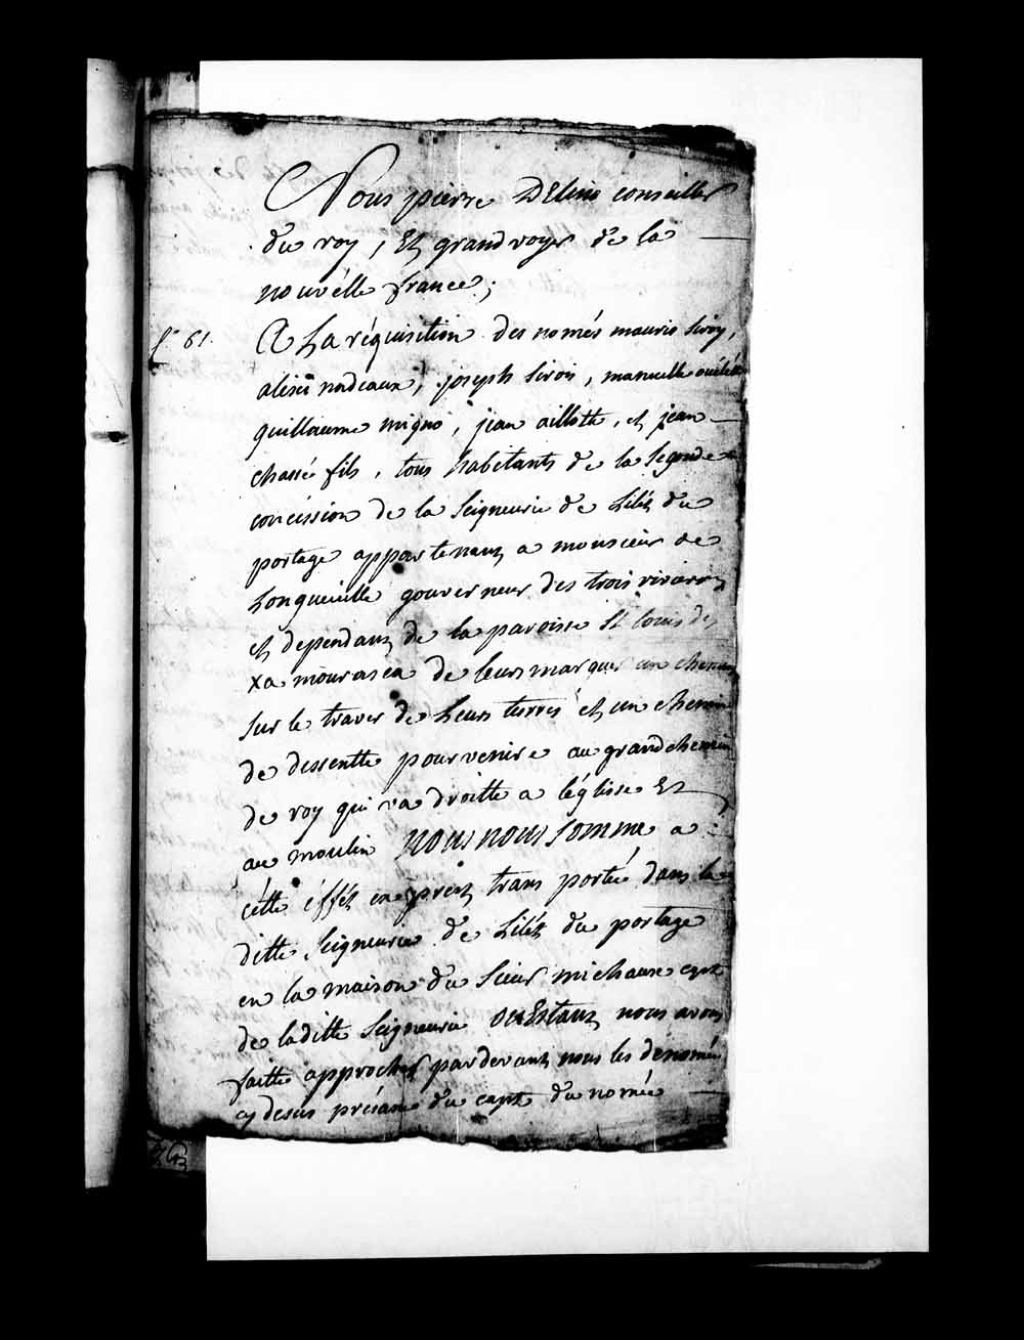 Nous pierre DElino conseiller
du roy, Et grand voyer de la
nouvélle france;
fo 61.
A La réquisition des només mauris siroy,
alexi nadeaux, joseph sirois, manuelle ouéléte
guillaume migno, jean aillotte, et jean
chassée fils, tous habitants de la segonde
concéssion de la seigneurie de Lilét du
portage appartenant a monsieur de
Longueuille gouverneur des trois rivierre
et dependant de la paroisse st louis de
Kamourasca de leurs marquer un chemin
sur le traver de Leurs terres et un chemin
de dessentte pour venire au grand chemin
de roy qui va droitte a léglisse Et
au moulin nous nous somme a
cétte éffét exeprest trans portée dans la
ditte seigneurie de Lilét du portage
en la maison du sieur michaux capt
de laditte seigneurie ou Estant nous avons
faitte approcher pardevant nous les dénomée
cy desus présance du capt du nomée